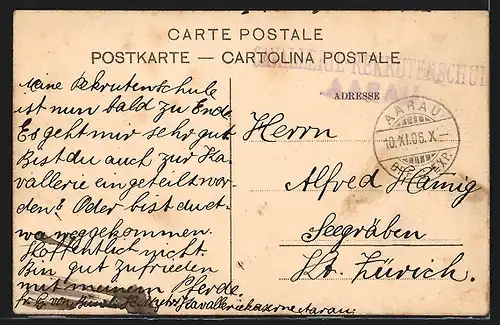 CARTE POSTALE
POSTKARTE — CARTOLINA POSTALE
CAVALLERIE REKRUTENSCHULE
AARAU
ADRESSE
AARAU
10.XI.06.X—
EXP.
Meine Rekrutenschule
ist nun bald zu Ende
Es geht mir sehr gut
Bist du auch zur Ka-
vallerie eingeteilt wor-
den? Oder bist du et-
wa weggekommen.
Hoffentlich nicht.
Bin gut zufrieden
mit meinem Pferde.
Kavalleriekaserne Aarau.
Herrn
Alfred
Seegräben
Kt. Zürich.